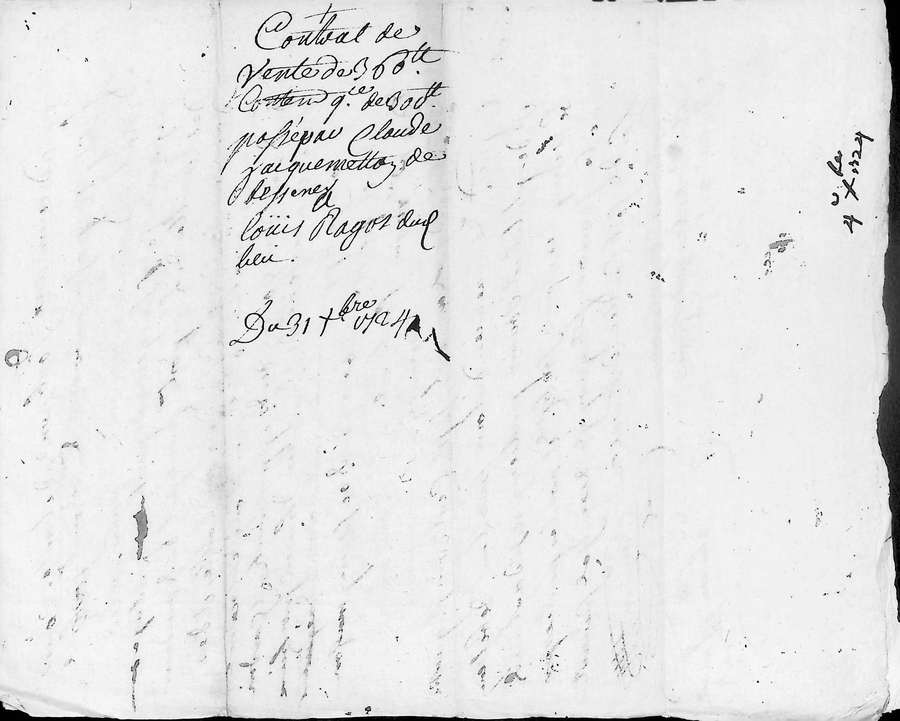 Contrat de
Vente de 360tt
Conten qce de 300tt
passé par Claude
Jacquemettaz de
Bessenex
a
louis Ragot dud
lieu.
Du 31 Xbre 1724